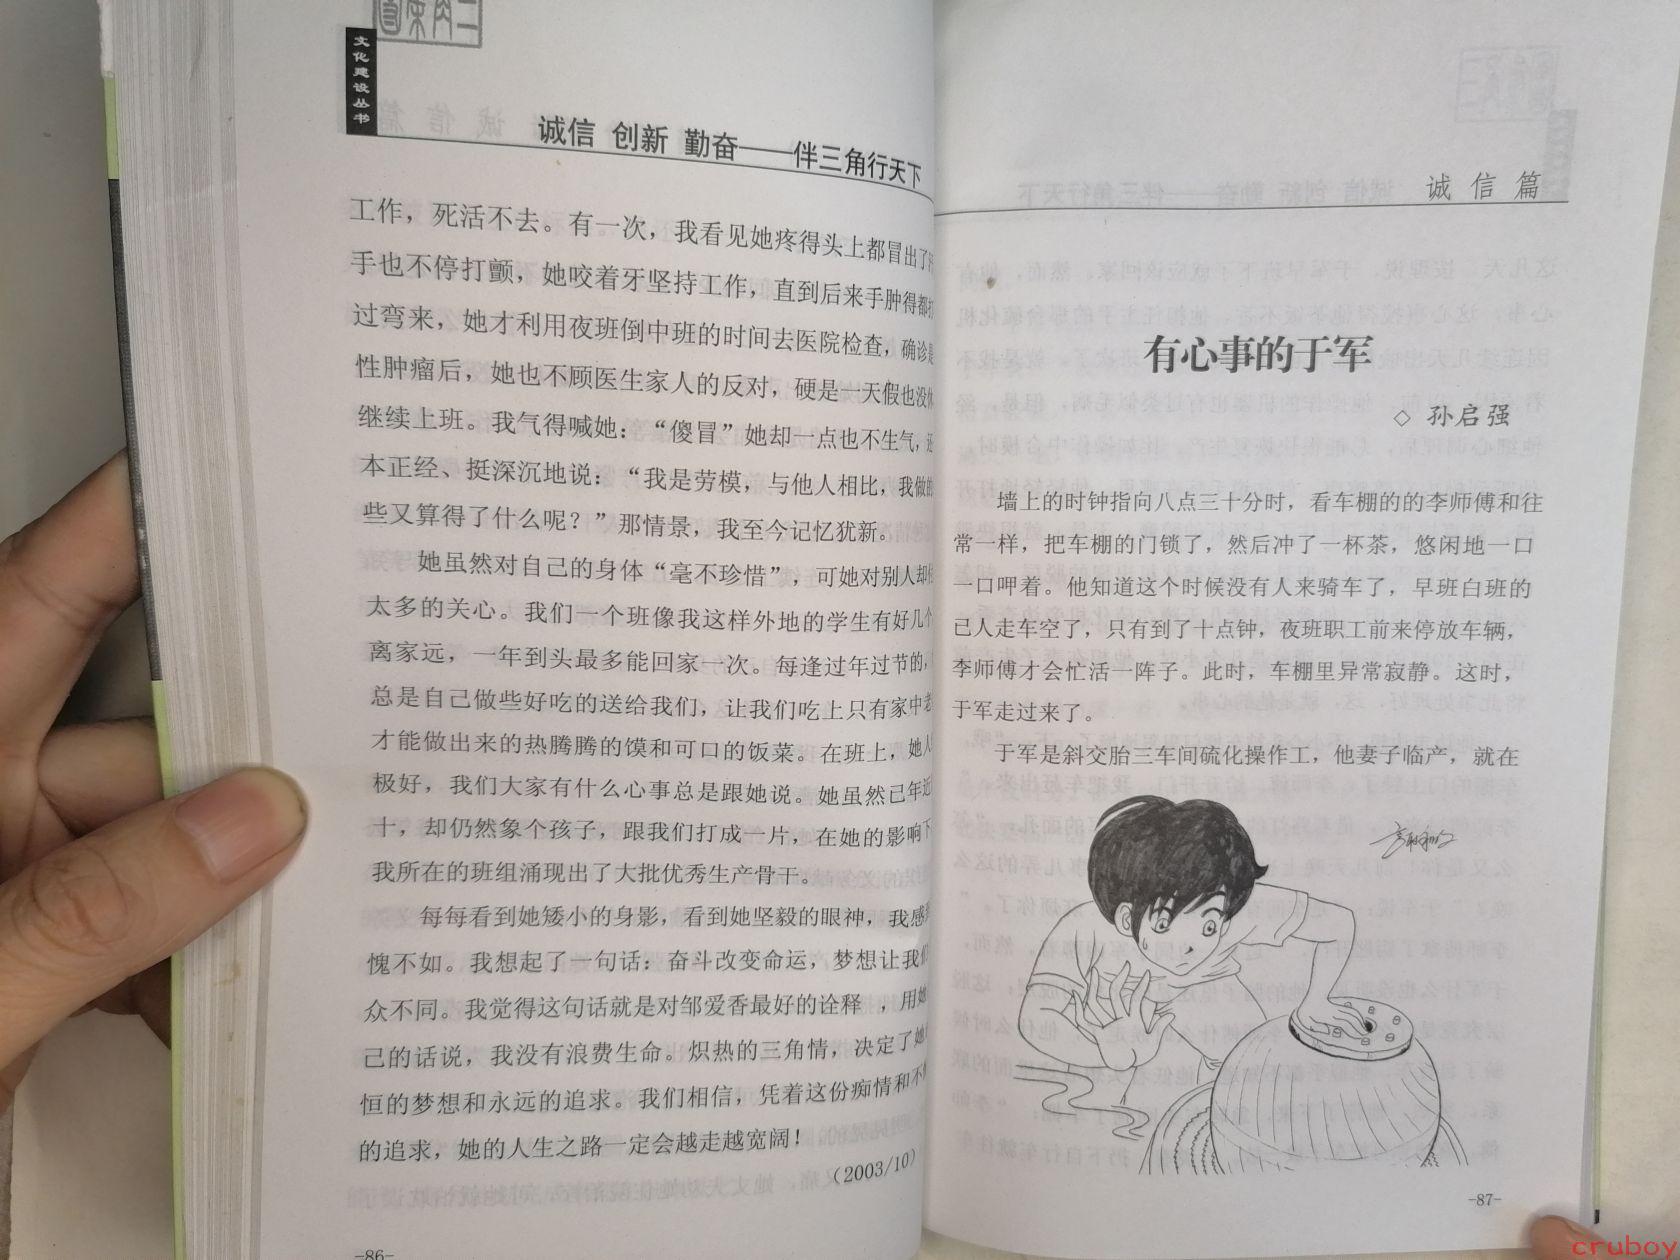 文化建设丛书
诚信 创新 勤奋——伴三角行天下
工作，死活不去。有一次，我看见她疼得头上都冒出了
手也不停打颤，她咬着牙坚持工作，直到后来手肿得都
过弯来，她才利用夜班倒中班的时间去医院检查，确诊是
性肿瘤后，她也不顾医生家人的反对，硬是一天假也没休
继续上班。我气得喊她：“傻冒”她却一点也不生气，还
本正经、挺深沉地说：“我是劳模，与他人相比，我做的
些又算得了什么呢？”那情景，我至今记忆犹新。
她虽然对自己的身体“毫不珍惜”，可她对别人却
太多的关心。我们一个班像我这样外地的学生有好几个
离家远，一年到头最多能回家一次。每逢过年过节的，
总是自己做些好吃的送给我们，让我们吃上只有家中老
才能做出来的热腾腾的馍和可口的饭菜。在班上，她人
极好，我们大家有什么心事总是跟她说。她虽然已年近
十，却仍然象个孩子，跟我们打成一片，在她的影响下
我所在的班组涌现出了大批优秀生产骨干。
每每看到她矮小的身影，看到她坚毅的眼神，我感
愧不如。我想起了一句话：奋斗改变命运，梦想让我们
众不同。我觉得这句话就是对邹爱香最好的诠释 ，用她
己的话说，我没有浪费生命。炽热的三角情，决定了她
恒的梦想和永远的追求。我们相信，凭着这份痴情和不
的追求，她的人生之路一定会越走越宽阔！
（2003/10）
-86-
诚 信 篇
有心事的于军
◇ 孙启强
墙上的时钟指向八点三十分时，看车棚的的李师傅和往
常一样，把车棚的门锁了，然后冲了一杯茶，悠闲地一口
一口呷着。他知道这个时候没有人来骑车了，早班白班的
已人走车空了，只有到了十点钟，夜班职工前来停放车辆，
李师傅才会忙活一阵子。此时，车棚里异常寂静。这时，
于军走过来了。
于军是斜交胎三车间硫化操作工，他妻子临产，就在
-87-
cruboy